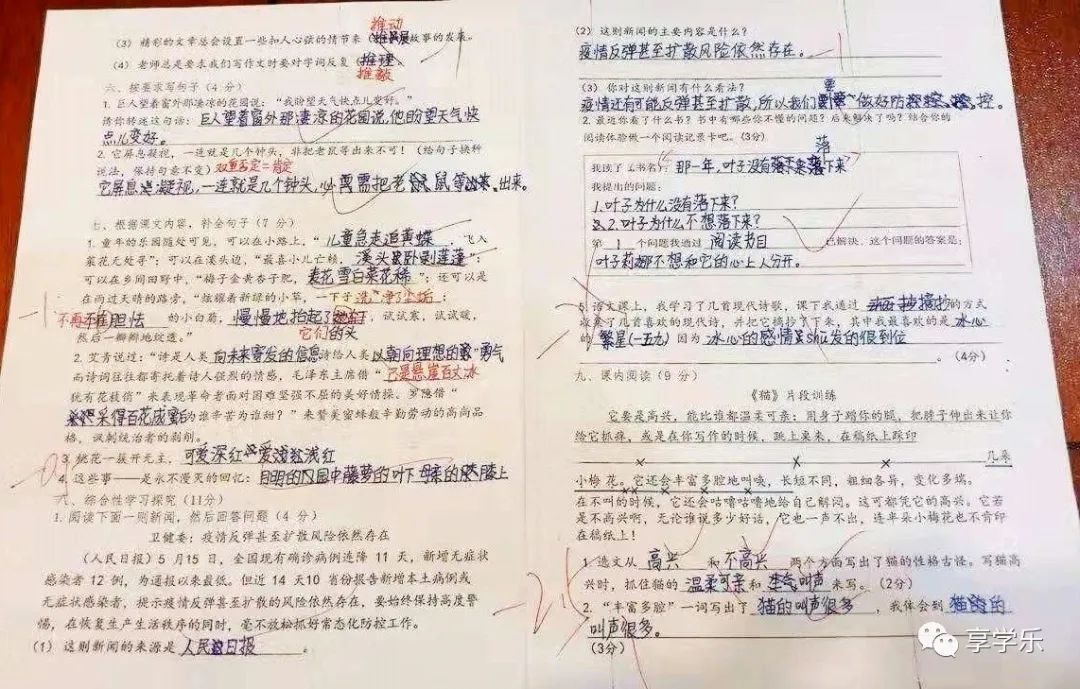 推动
(3) 精彩的文章总会设置一些扣人心弦的情节来(故事的发展。
(4) 老师总是要求我们写作文时要对字词反复(推理
推敲
六、按要求写句子(4 分)
1. 巨人望着窗外那凄凉的花园说:“我盼望天气快点儿变好。”
请你转述这句话:巨人望着窗外那凄凉的花园说,他盼望天气快
点儿变好。
2. 它屏息凝视,一连就是几个钟头,非把老鼠等出来不可!(给句子换种
说法,保持句意不变)双重否定=肯定
它屏息凝视,一连就是几个钟头,必需把老鼠等出来。
七、根据课文内容,补全句子(7 分)
1. 童年的乐园随处可见,可以在小路上,“儿童急走追黄蝶,飞入
菜花无处寻”;可以在溪头边,“最喜小儿亡赖,溪头卧剥莲蓬”;
可以在乡间田野中,“梅子金黄杏子肥,麦花雪白菜花稀”;还可以是
在雨过天晴的路旁,“炫耀着新绿的小草,一下子洗净了尘垢;
不再胆怯的小白菊,慢慢地抬起了她们,试试寒,试试暖,
它们的头
然后一瓣瓣地绽透。”
2. 艾青说过:“诗是人类向未来寄发的信息诗给人类以朝向理想的勇气
而诗词往往都寄托着诗人强烈的情感,毛泽东主席借“已是悬崖百丈冰
犹有花枝俏”来表现革命者面对困难坚强不屈的美好情操。罗隐借“
采得百花成蜜后为谁辛苦为谁甜?”来赞美蜜蜂般辛勤劳动的高尚品
格,讽刺统治者的剥削。
3. 桃花一簇开无主,可爱深红爱浅红
4. 这些事——是永不漫灭的回忆:月明的园中藤萝的叶下母亲的膝上
八、综合性学习探究(11分)
1. 阅读下面一则新闻,然后回答问题(4 分)
卫健委:疫情反弹甚至扩散风险依然存在
(人民日报)5 月 15 日,全国现有确诊病例连降 11 天,新增无症状
感染者 12 例,为通报以来最低。但近 14 天10 省份报告新增本土病例或
无症状感染者,提示疫情反弹甚至扩散的风险依然存在,要始终保持高度警
惕,在恢复生产生活秩序的同时,毫不放松抓好常态化防控工作。
(1) 这则新闻的来源是人民日报。
(2) 这则新闻的主要内容是什么?
疫情反弹甚至扩散风险依然存在。
(3) 你对这则新闻有什么看法?
要
疫情还有可能反弹甚至扩散,所以我们做好防控。
2. 最近你看了什么书?书中有哪些你不懂的问题?后来解决了吗?结合你的
阅读体验做一个阅读记录卡吧。(3分)
落
我读了《书名》:那一年,叶子没有落下来
我提出的问题:
1.叶子为什么没有落下来?
2.叶子为什么不想落下来?
第 1 个问题我通过 阅读书目 已解决,这个问题的答案是:
叶子莉娜不想和它的心上人分开。
语文课上,我学习了几首现代诗歌,课下我通过摘抄的方式
收集了几首喜欢的现代诗,并把它摘抄了下来,其中我最喜欢的是 冰心
的 繁星(一五九) 因为 冰心的感情shū发的很到位
。(4分)
九、课内阅读(9 分)
《猫》片段训练
它要是高兴,能比谁都温柔可亲:用身子蹭你的腿,把脖子伸出来让你
给它抓痒,或是在你写作的时候,跳上桌来,在稿纸上踩印
几朵
小梅花。它还会丰富多腔地叫唤,长短不同,粗细各异,变化多端。
在不叫的时候,它还会咕噜咕噜地给自己解闷。这可都凭它的高兴。它若
是不高兴啊,无论谁说多少好话,它也一声不出,连半朵小梅花也不肯印
在稿纸上!
1. 选文从 高兴 和 不高兴 两个方面写出了猫的性格古怪。写猫高
兴时,抓住猫的 温柔可亲 和 叫声 来写。(2分)
2. “丰富多腔”一词写出了 猫的叫声很多,我体会到 猫的
叫声很多。
(3分)
享学乐